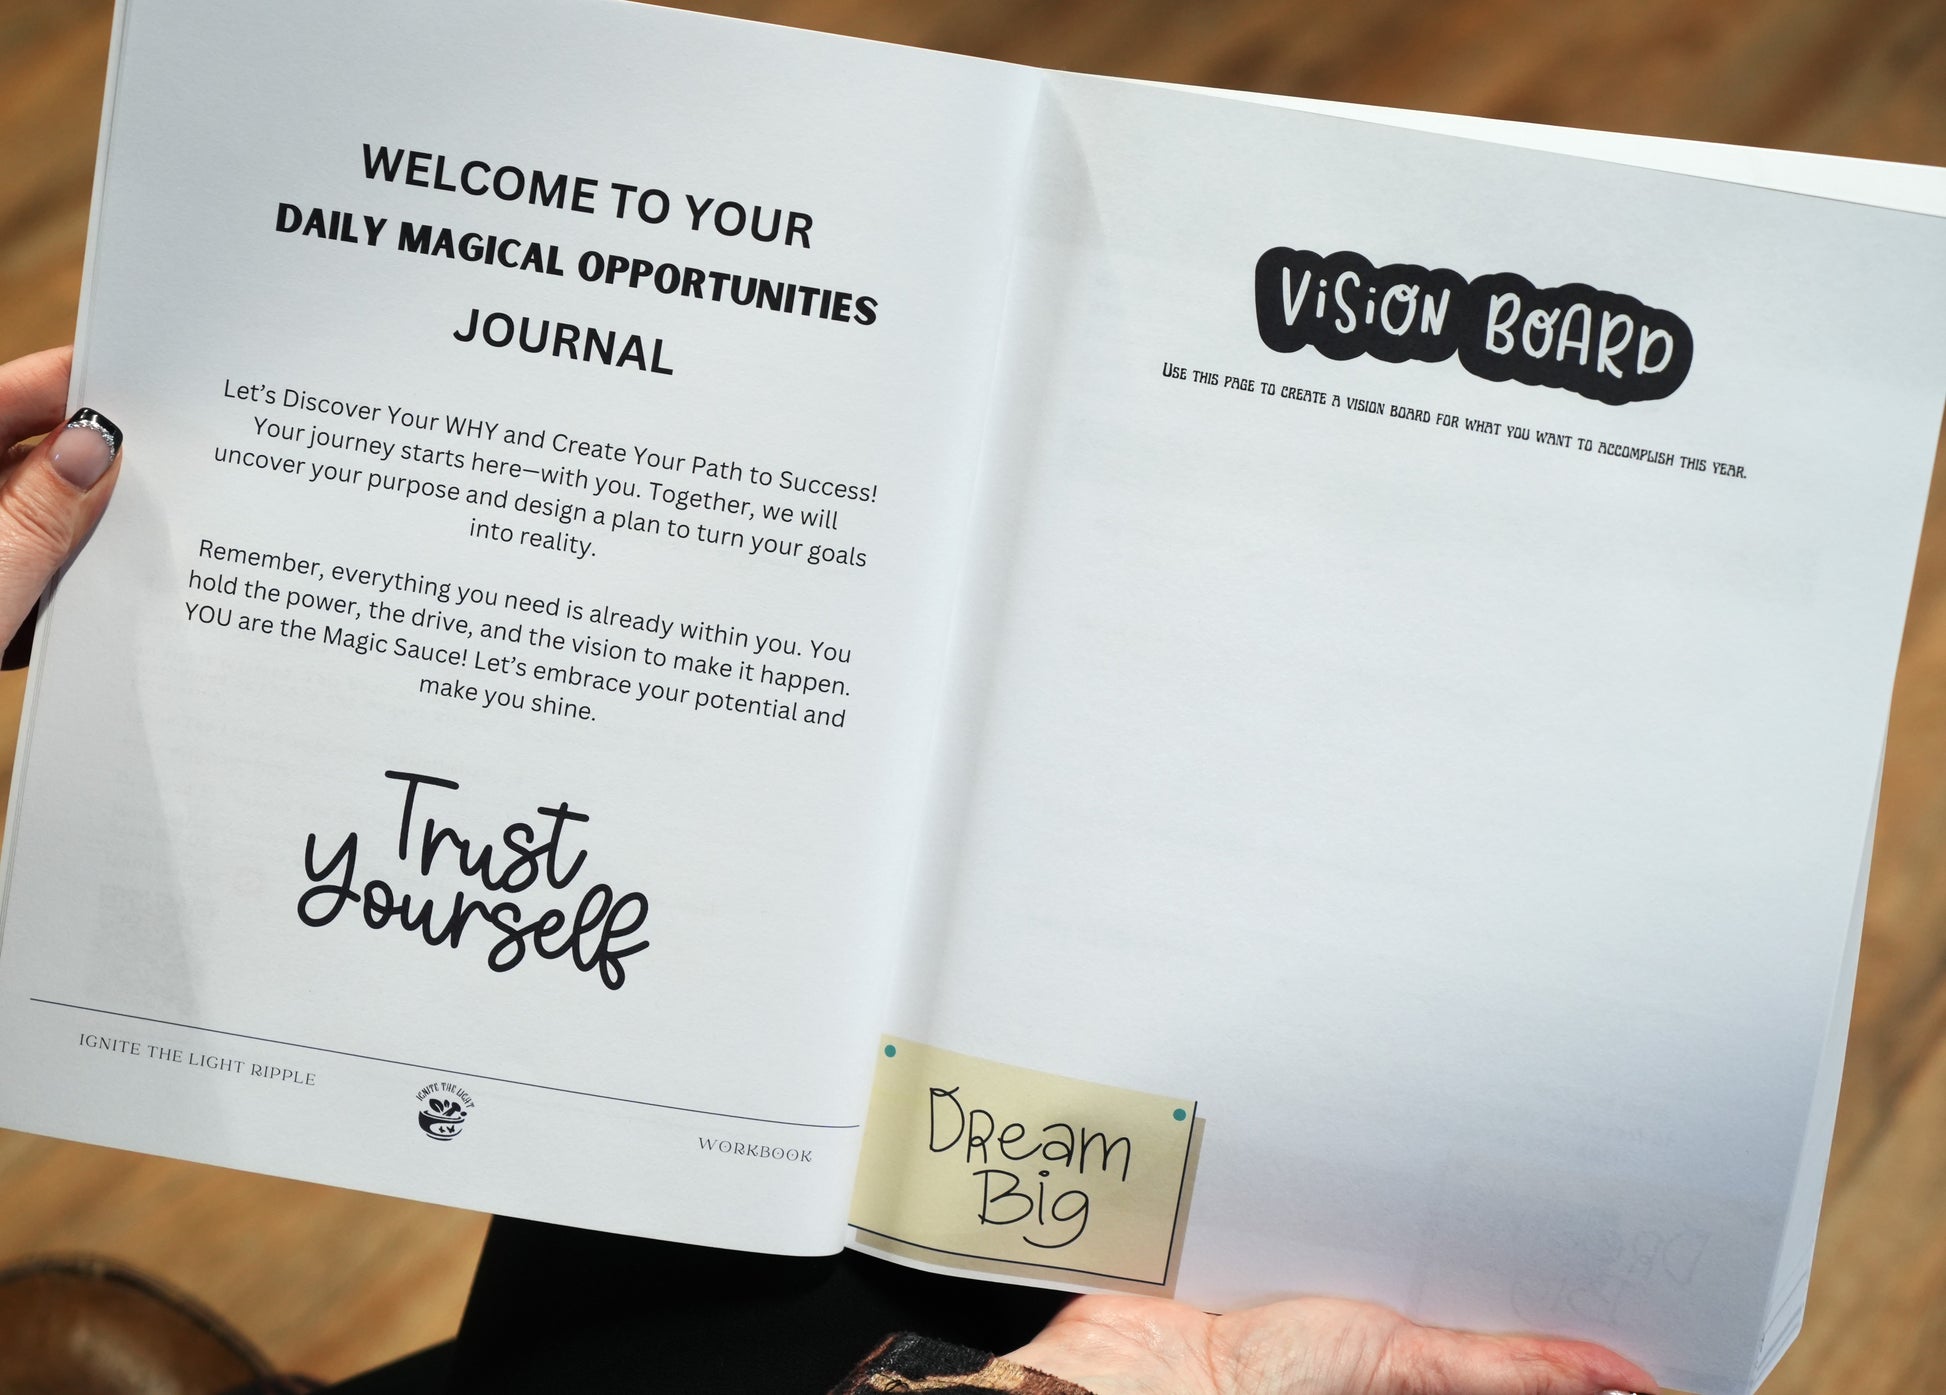 WELCOME TO YOUR
DAILY MAGICAL OPPORTUNITIES
JOURNAL
Let's Discover Your WHY and Create Your Path to Success!
Your journey starts here—with you. Together, we will
uncover your purpose and design a plan to turn your goals
into reality.
Remember, everything you need is already within you. You
hold the power, the drive, and the vision to make it happen.
YOU are the Magic Sauce! Let's embrace your potential and
make you shine.
Trust
yourself
IGNITE THE LIGHT RIPPLE
IGNITE THE LIGHT
WORKBOOK
ViSiON BOARD
USE THIS PAGE TO CREATE A VISION BOARD FOR WHAT YOU WANT TO ACCOMPLISH THIS YEAR.
DReam
Big